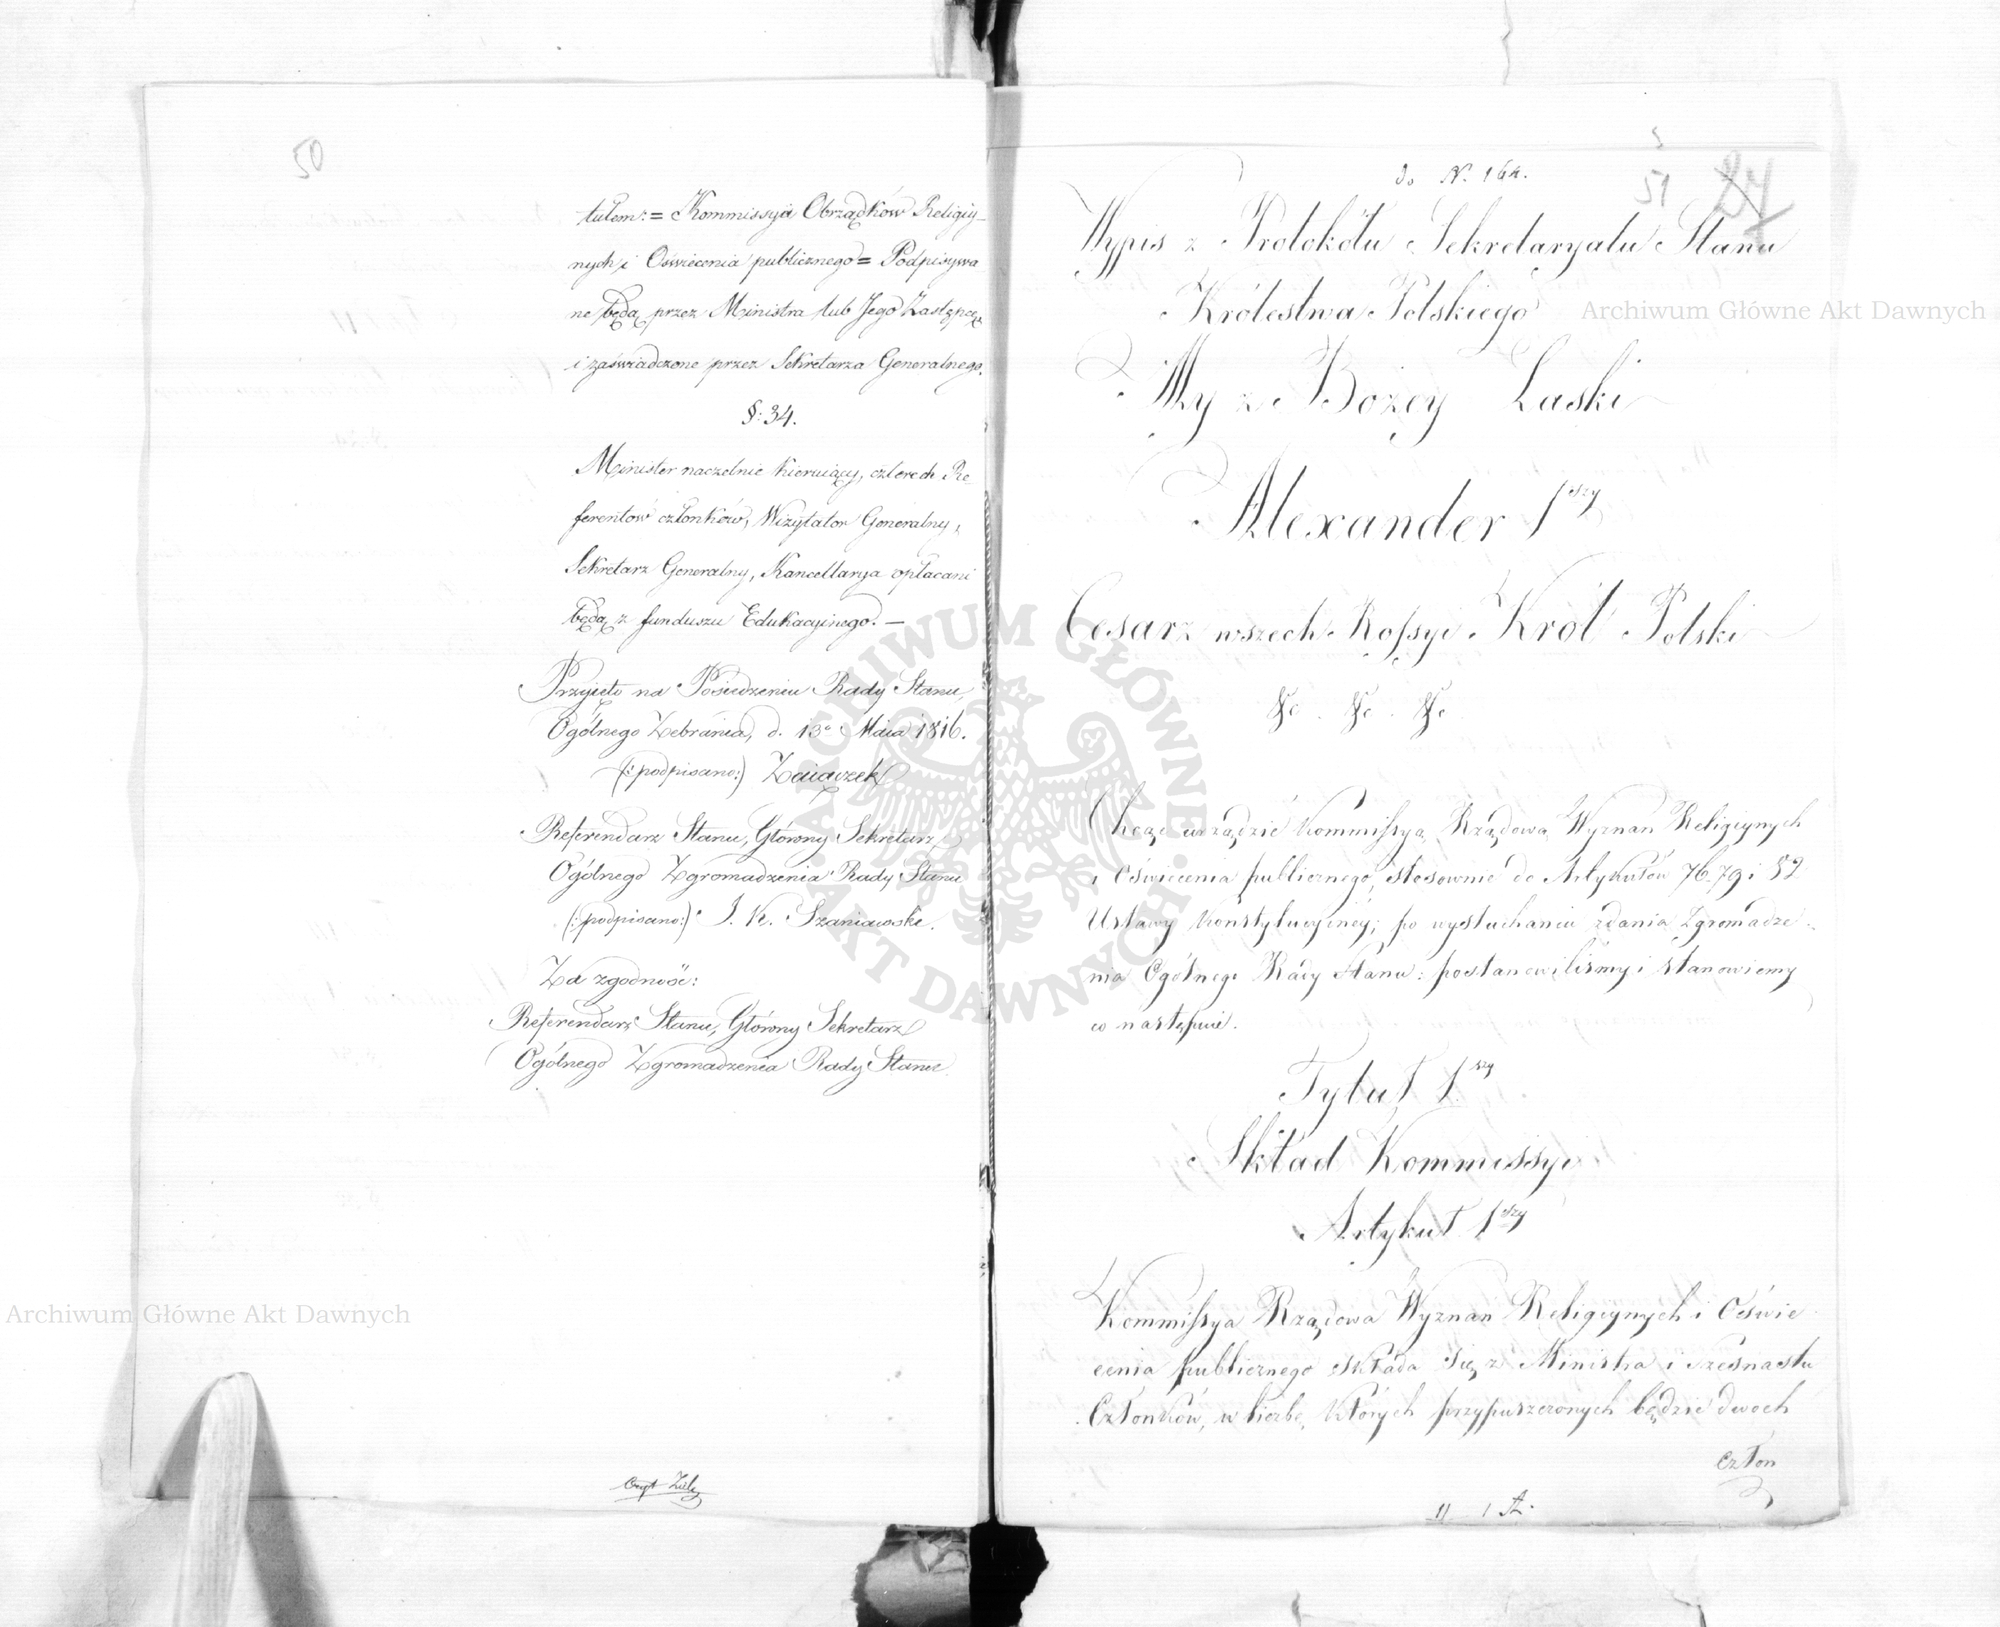 50
tułem: = Kommissyia Obrządków Religiy-
nych i Oświecenia publicznego = Podpisywa
ne będą przez Ministra lub Jego Zastępcę,
i zaświadczone przez Sekretarza Generalnego.
§: 34.
Minister naczelnie kieruiący, czterech Re-
ferentow członków, Wizytator Generalny,
Sekretarz Generalny, Kancellarya opłacani
będą z funduszu Edukacyinego. —
Przyięto na Posiedzeniu Rady Stanu,
Ogólnego Zebrania, d. 13º Maia 1816.
(:podpisano:) Zaiączek
Referendarz Stanu, Główny Sekretarz
Ogólnego Zgromadzenia Rady Stanu
(:podpisano:) J. K. Szaniawski.
Za zgodność:
Referendarz Stanu, Główny Sekretarz
Ogólnego Zgromadzenia Rady Stanu
do N. 164.
51 27
Wypis z Protokółu Sekretaryatu Stanu
Królestwa Polskiego
My z Bożey Łaski
Alexander 1szy
Cesarz wszech Rossyi Król Polski
&c. &c. &c.
Chcąc urządzić Kommissyą Rządową Wyznań Religiynych
i Oświecenia publicznego, stosownie do Artykułów 76. 79 i 82
Ustawy Konstytucyiney; po wysłuchaniu zdania Zgromadze-
nia Ogólnego Rady Stanu: postanowiliśmy i stanowiemy
co następuie.
Tytuł 1szy
Skład Kommissyi
Artykuł 1szy
Kommissya Rządowa Wyznań Religiynych i Oświe
cenia publicznego składa się z Ministra i szesnastu
Członków, w liczbę których przypuszczonych będzie dwoch
człon
Archiwum Główne Akt Dawnych
Archiwum Główne Akt Dawnych
ARCHIWUM GŁÓWNE AKT DAWNYCH